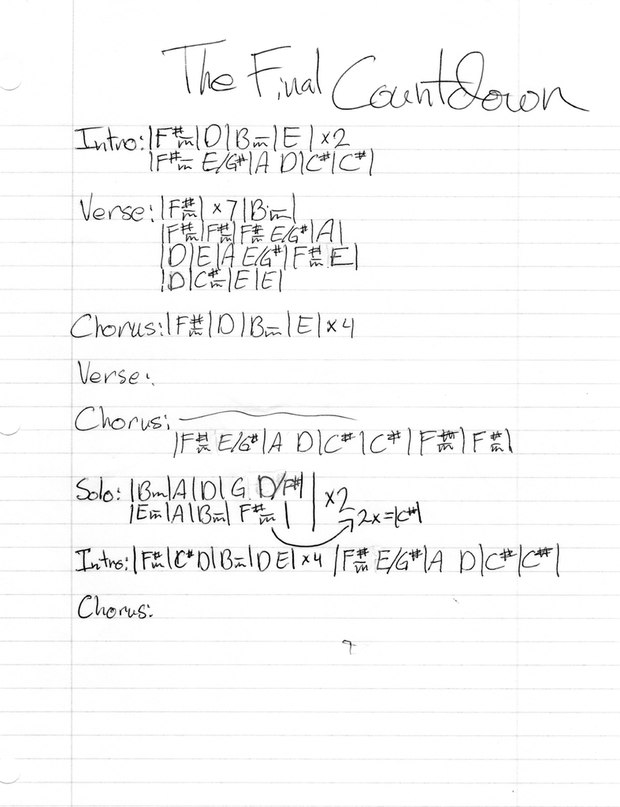 The Final Countdown
Intro: |F#m|D|Bm|E| x2
|F#m E/G#|A D|C#|C#|
Verse: |F#m| x7|Bm|
|F#m|F#m|F#m E/G#|A|
|D|E|A E/G#|F#m E|
|D|C#m|E|E|
Chorus: |F#m|D|Bm|E| x4
Verse:
Chorus:
|F#m E/G#|A D|C#|C#|F#m|F#m|
Solo: |Bm|A|D|G D/F#|
|Em|A|Bm| F#m | x2
2x=|C#|
Intro: |F#m|C# D|Bm|D E| x4 |F#m E/G#|A D|C#|C#|
Chorus: